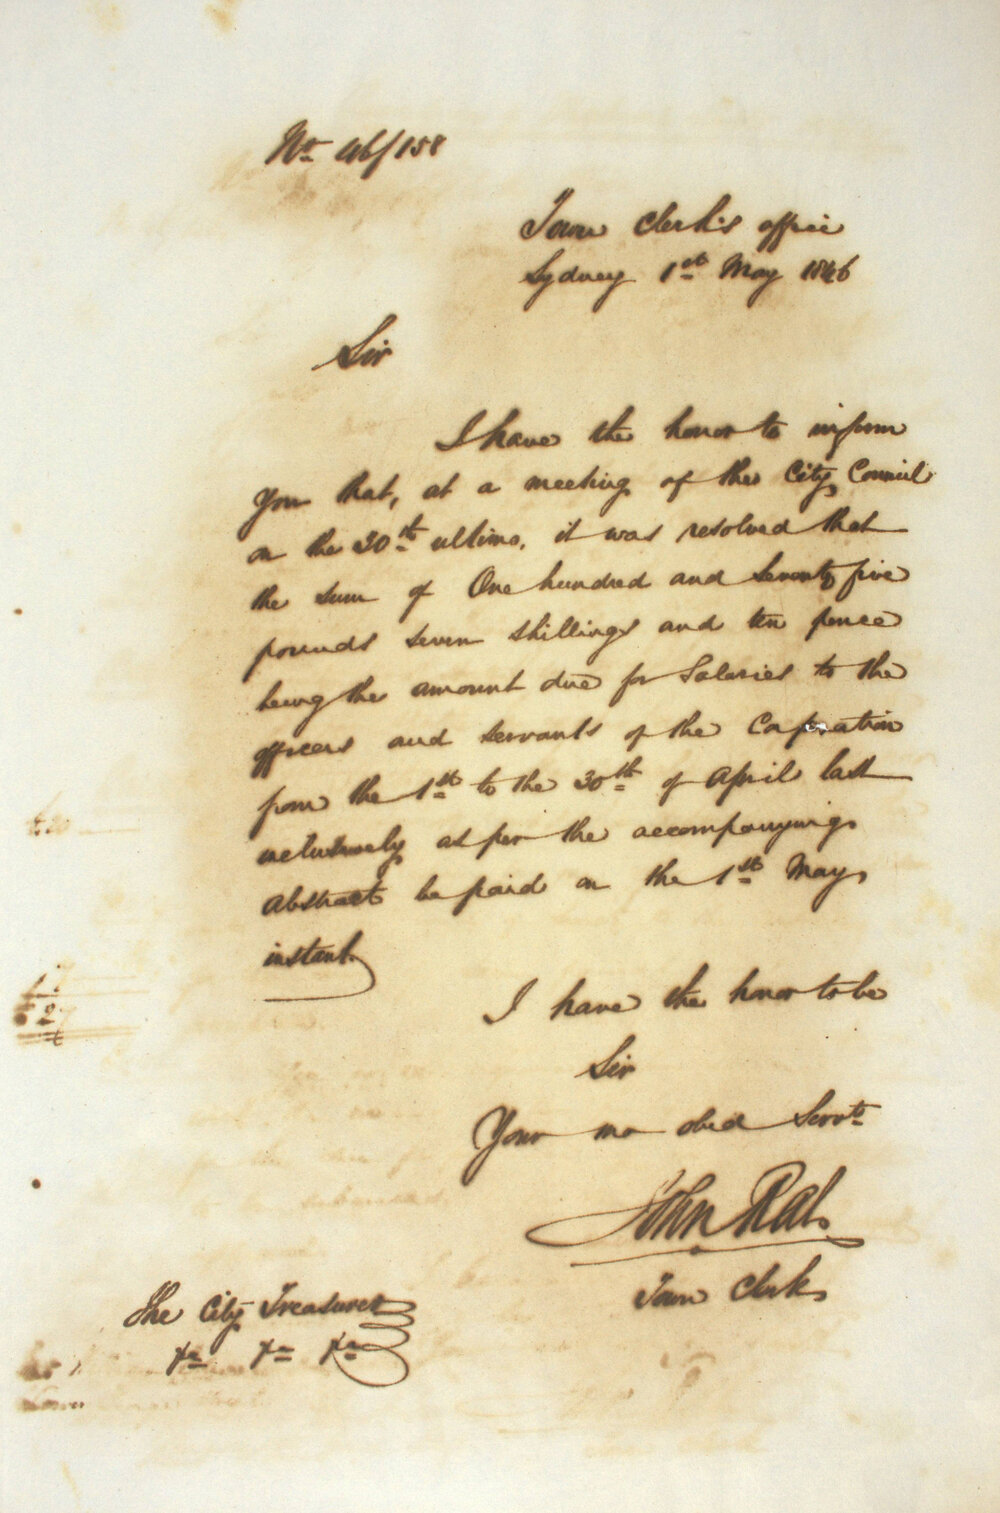 No 46/158
Town Clerk's office
Sydney 1st May 1846
Sir
I have the honor to inform
you that, at a meeting of the City Council
on the 30th ultimo, it was resolved that
the sum of One hundred and seventy five
pounds seven shillings and ten pence
being the amount due for Salaries to the
officers and servants of the Corporation
from the 1st to the 30th of April last
inclusively as per the accompanying
abstract be paid on the 1st May
instant.
I have the honor to be
Sir
Your mo obed Servt
John Rae
Town Clerk
The City Treasurer
&c &c &c